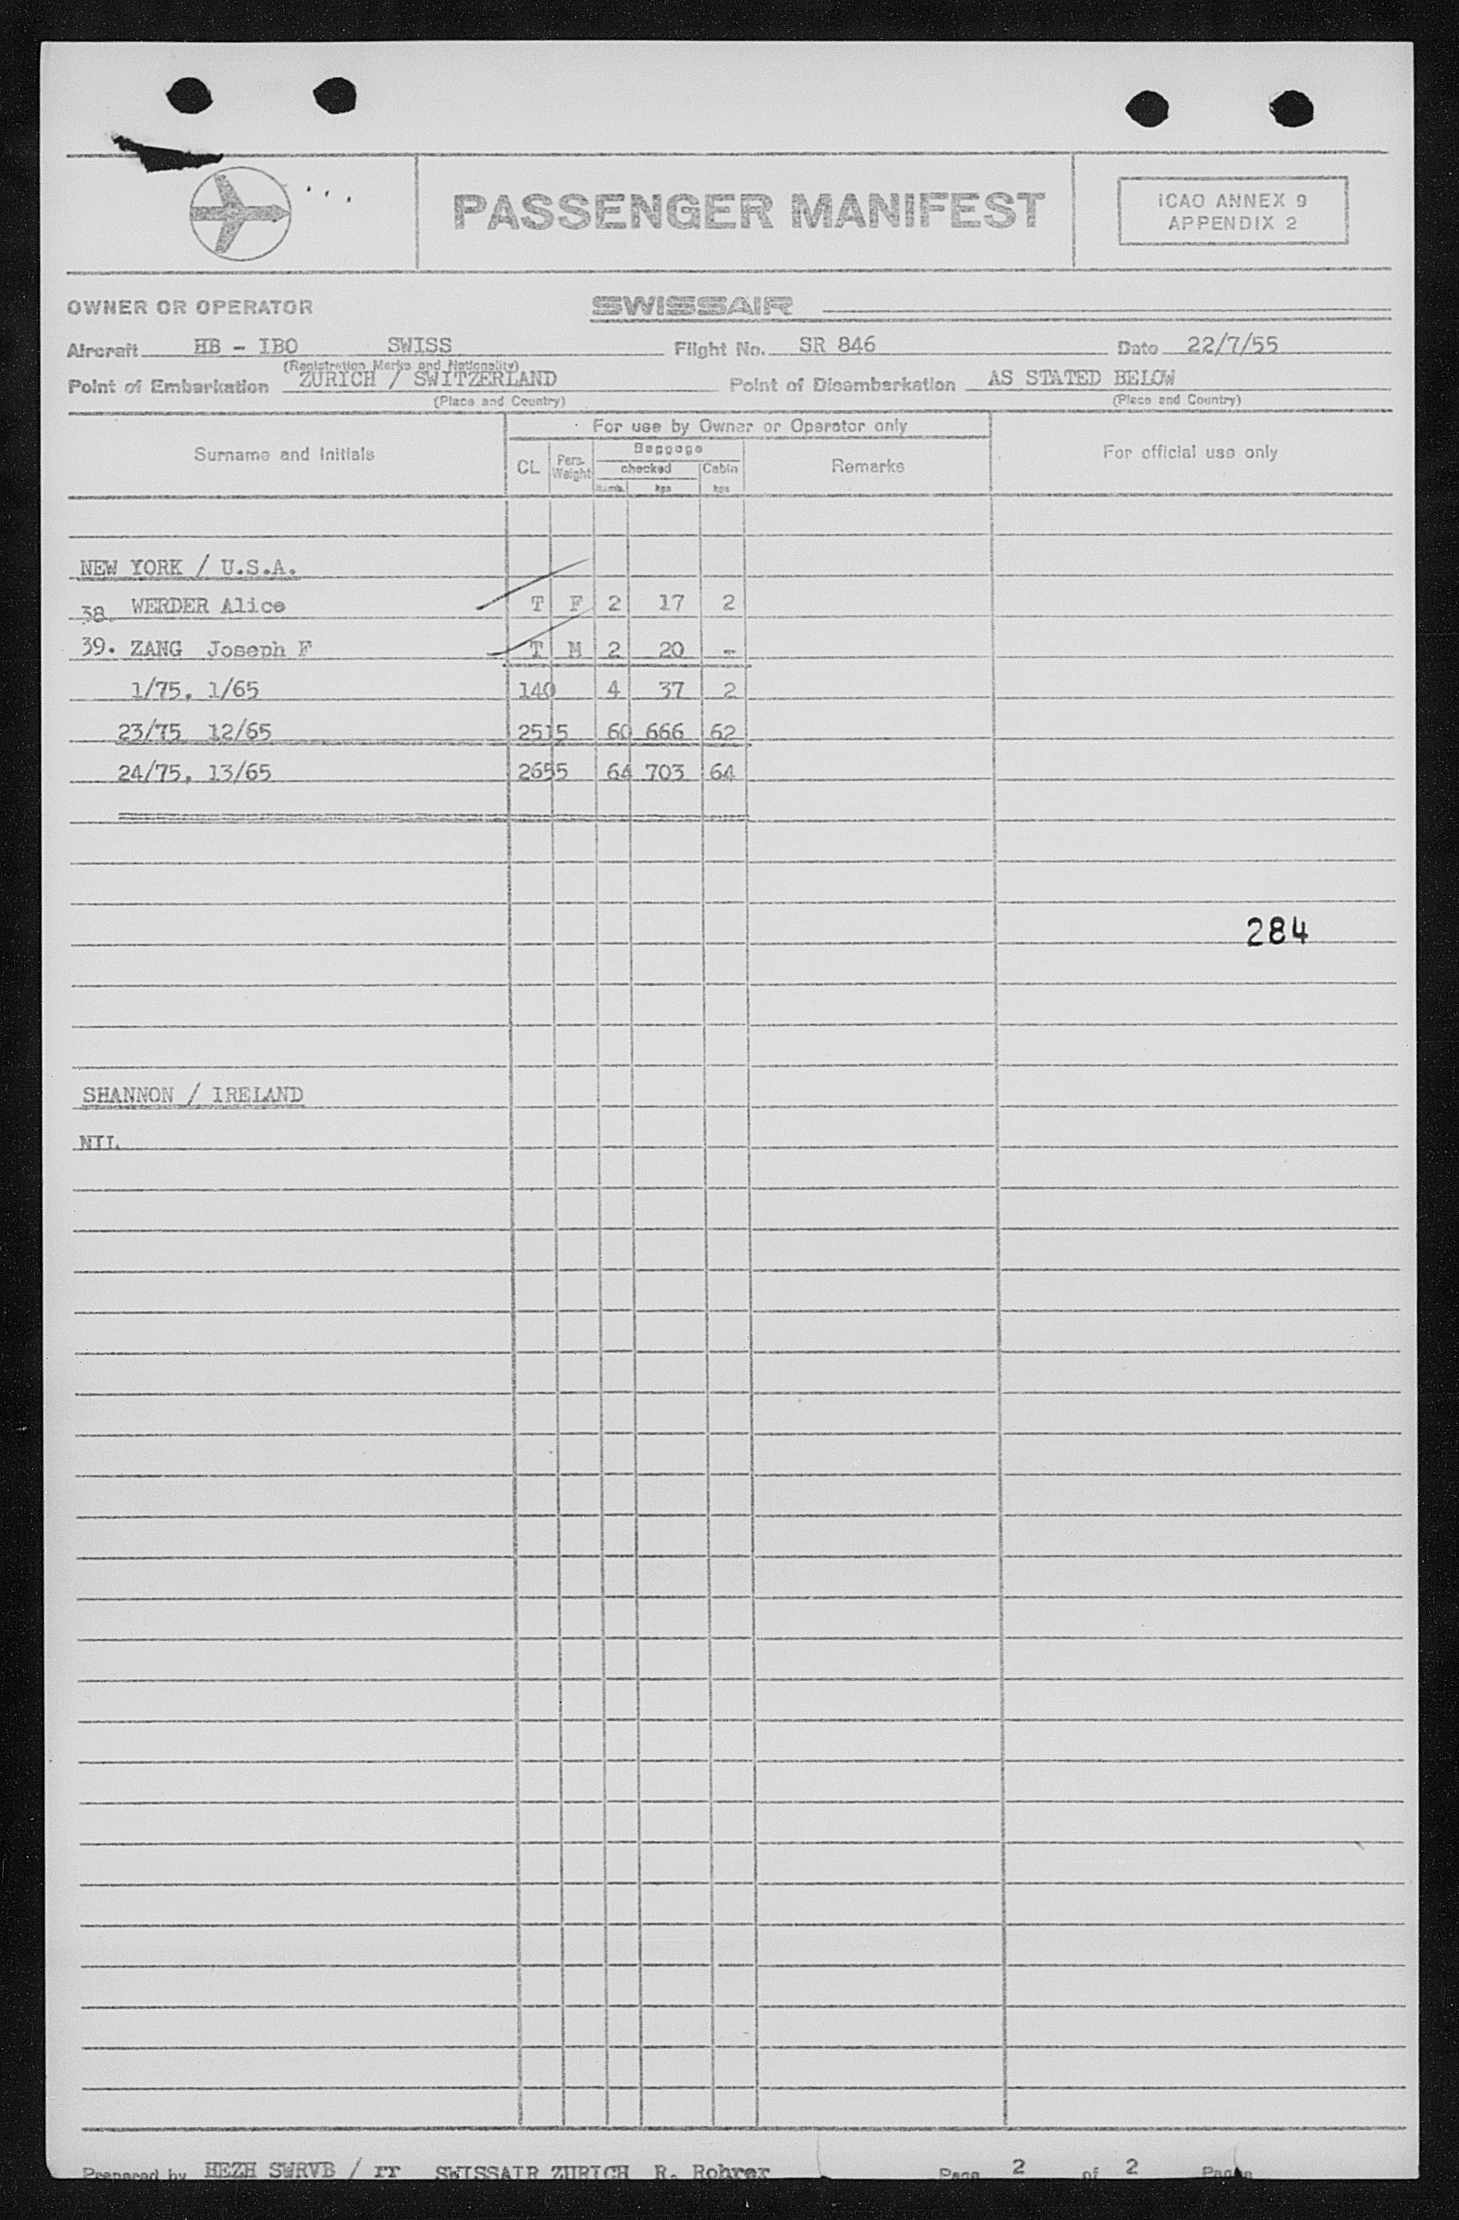 PASSENGER MANIFEST
ICAO ANNEX 9
APPENDIX 2
OWNER OR OPERATOR SWISSAIR
Aircraft HB - IBO SWISS Flight No. SR 846 Date 22/7/55
(Registration Marks and Nationality)
Point of Embarkation ZURICH / SWITZERLAND Point of Disembarkation AS STATED BELOW
(Place and Country) (Place and Country)
For use by Owner or Operator only
Surname and Initials CL Pers. Weight Baggage Remarks For official use only
checked Cabin
Numb. kgs kgs
NEW YORK / U.S.A.
38. WERDER Alice T F 2 17 2
39. ZANG Joseph F T M 2 20 -
1/75, 1/65 140 4 37 2
23/75 12/65 2515 60 666 62
24/75, 13/65 2655 64 703 64
284
SHANNON / IRELAND
NIL
Prepared by HEZH SWRVB / rr SWISSAIR ZURICH R. Rohrer Page 2 of 2 Pages